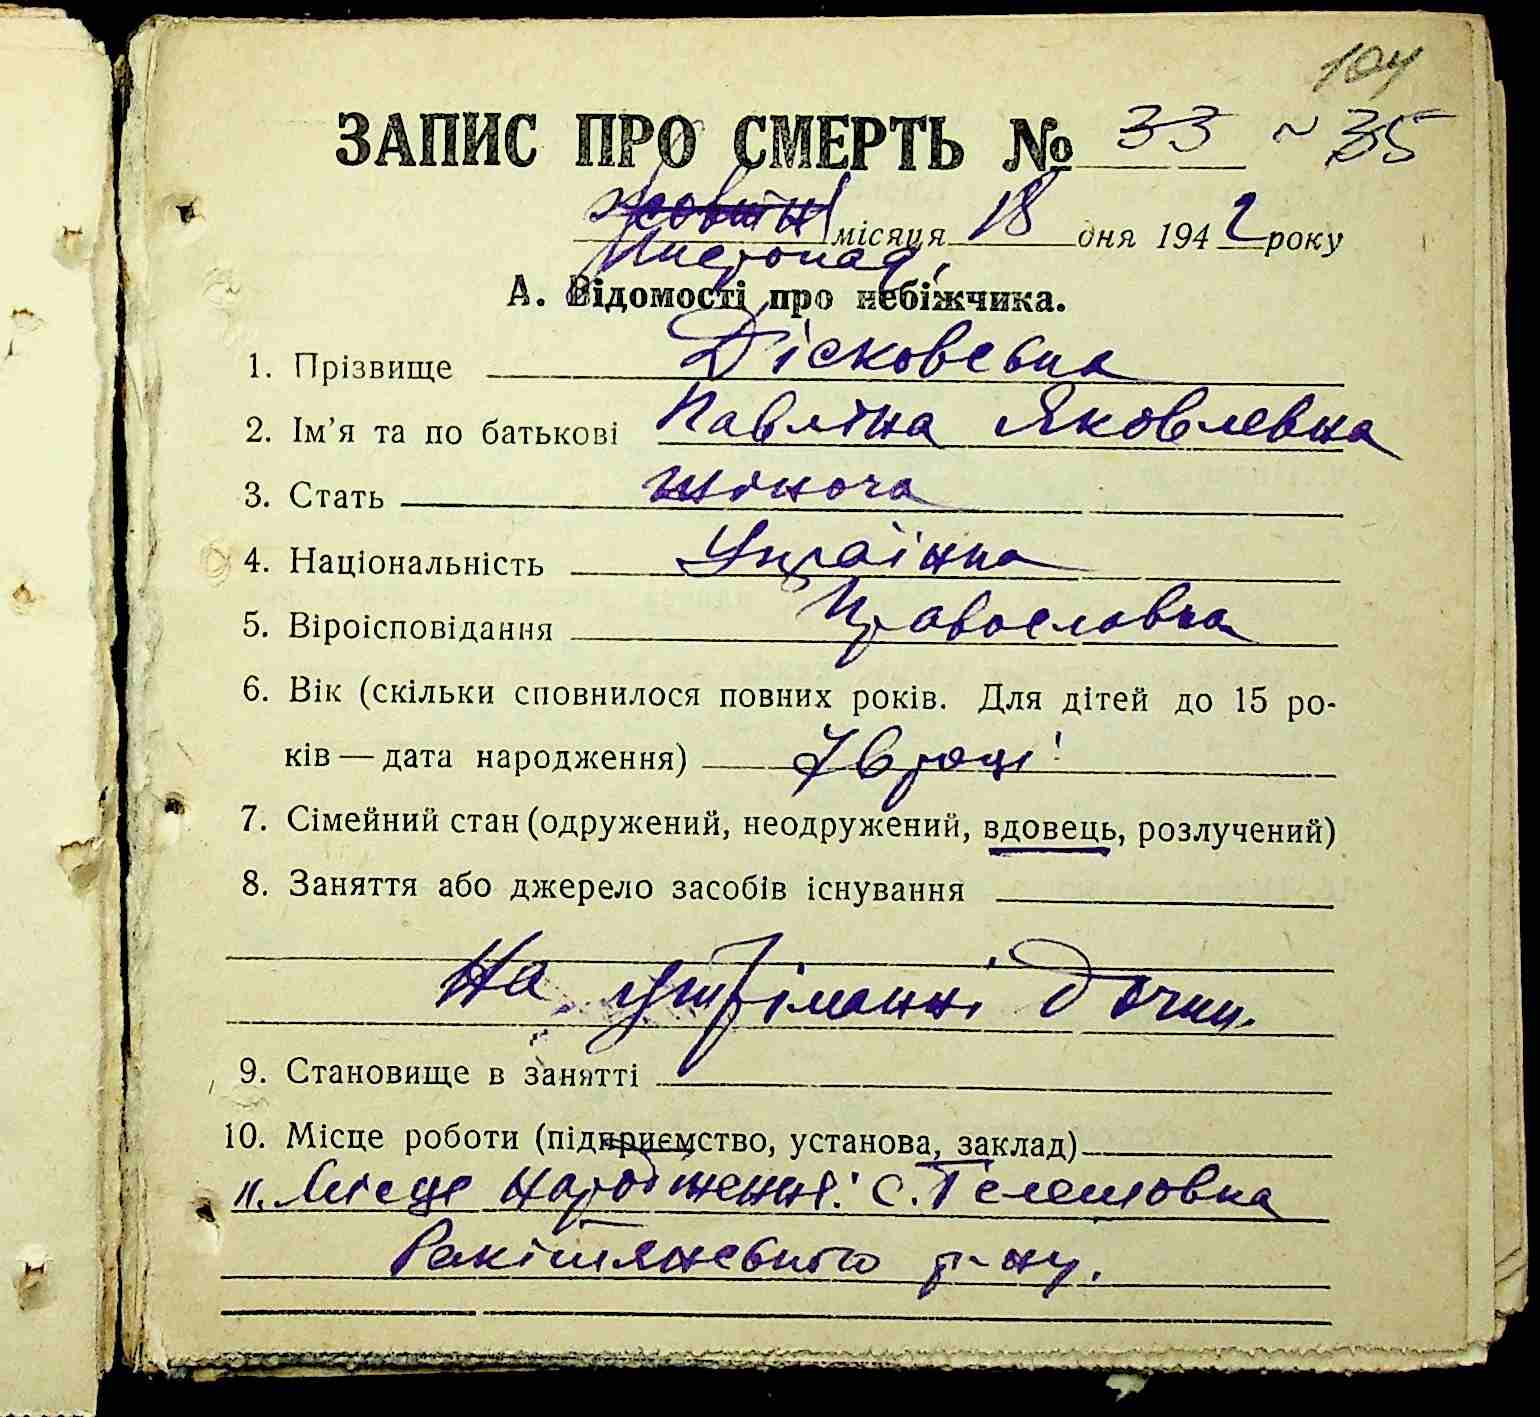 104
ЗАПИС ПРО СМЕРТЬ № 33 ~ 35
жовтня місяця 18 дня 1942 року
Листопад
А. Відомості про небіжчика.
1. Прізвище Дісковська
2. Ім'я та по батькові Павліна Яковлевна
3. Стать жіноча
4. Національність Українка
5. Віроісповідання Православна
6. Вік (скільки сповнилося повних років. Для дітей до 15 ро-
ків — дата народження) 76 роцi
7. Сімейний стан (одружений, неодружений, вдовець, розлучений)
8. Заняття або джерело засобів існування
На утріманні дочки.
9. Становище в занятті
10. Місце роботи (підприємство, установа, заклад)
Місце народження: с. Телешовка
Ракітянського р-ну.